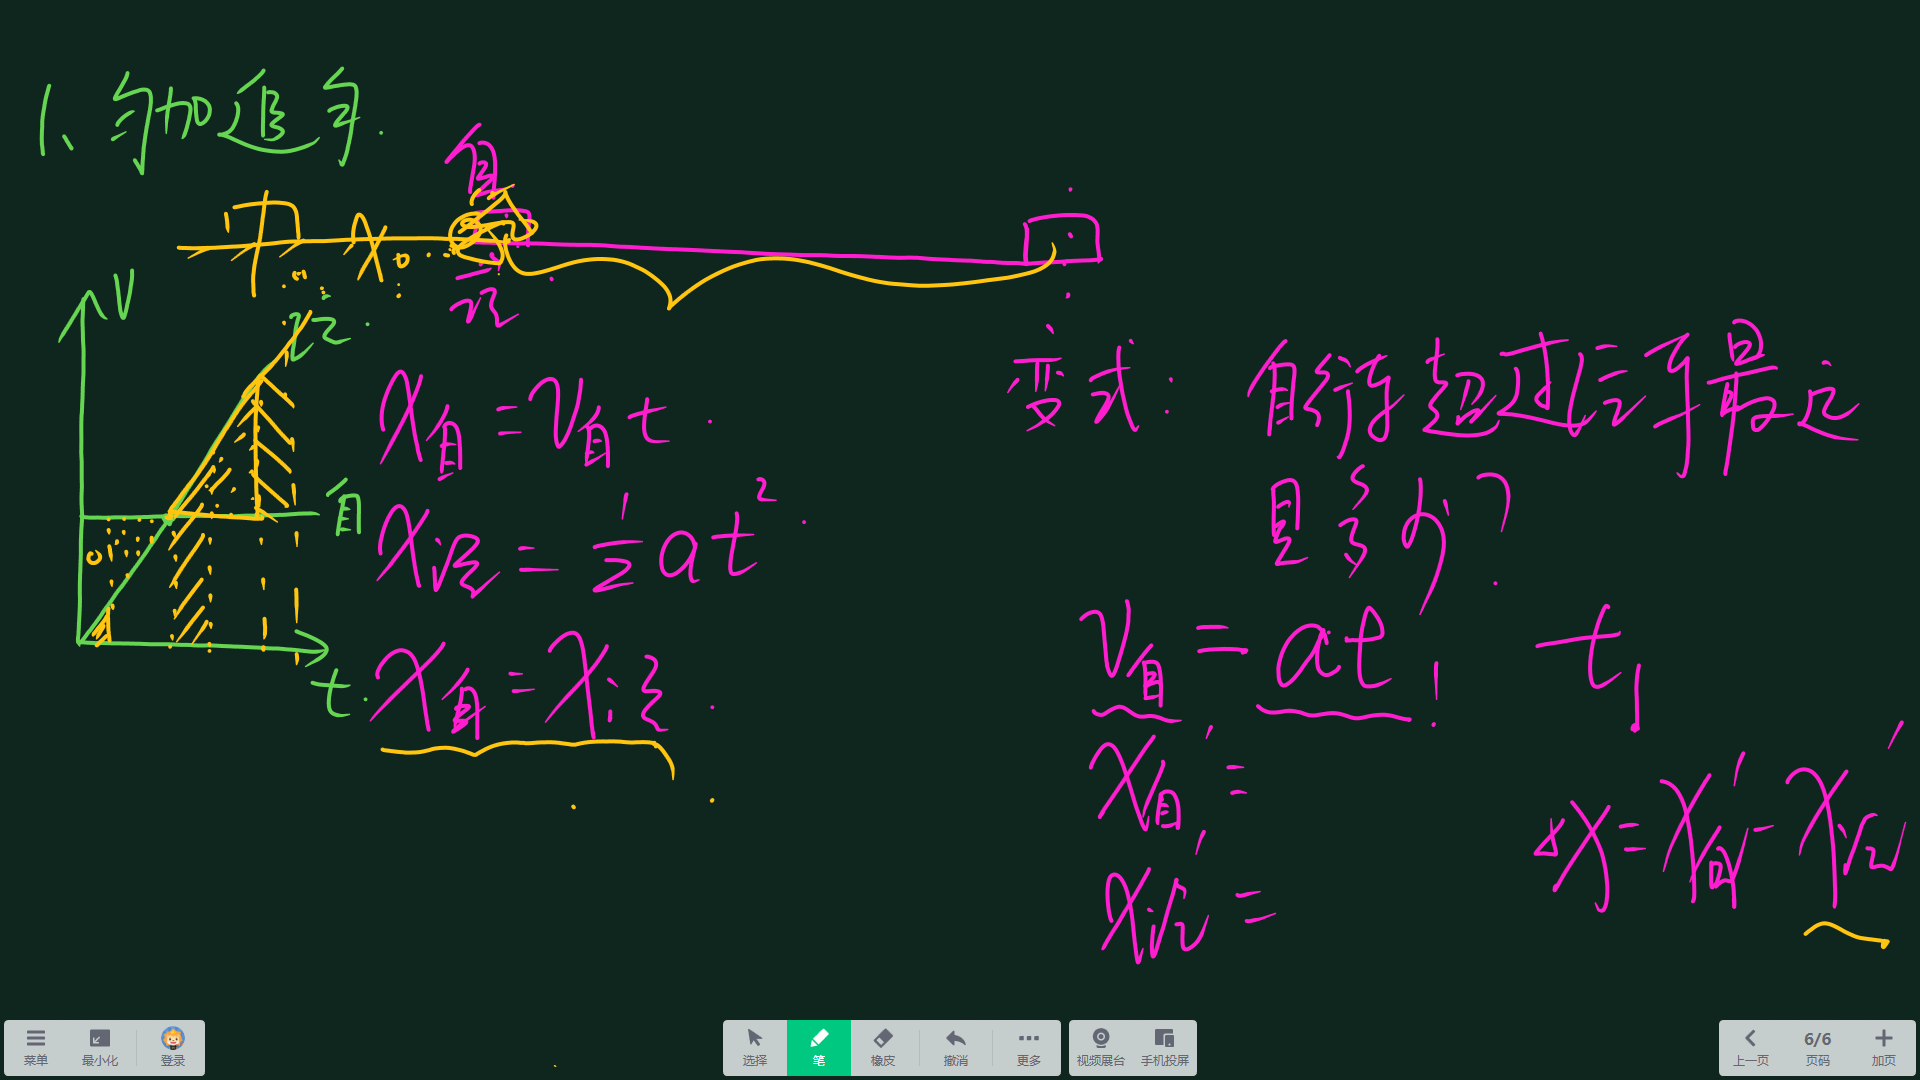 1、匀加追匀.
自
汽
x₀
V
汽
自
t
x自 = v自 t
x汽 = ½ a t²
x自 = x汽
变式: 自行车超过汽车最远
是多少?
v自 = a t₁
t₁
x自' =
x汽' =
Δx = x自' - x汽'
菜单
最小化
登录
选择
笔
橡皮
撤消
更多
视频展台
手机投屏
上一页
6/6
页码
加页